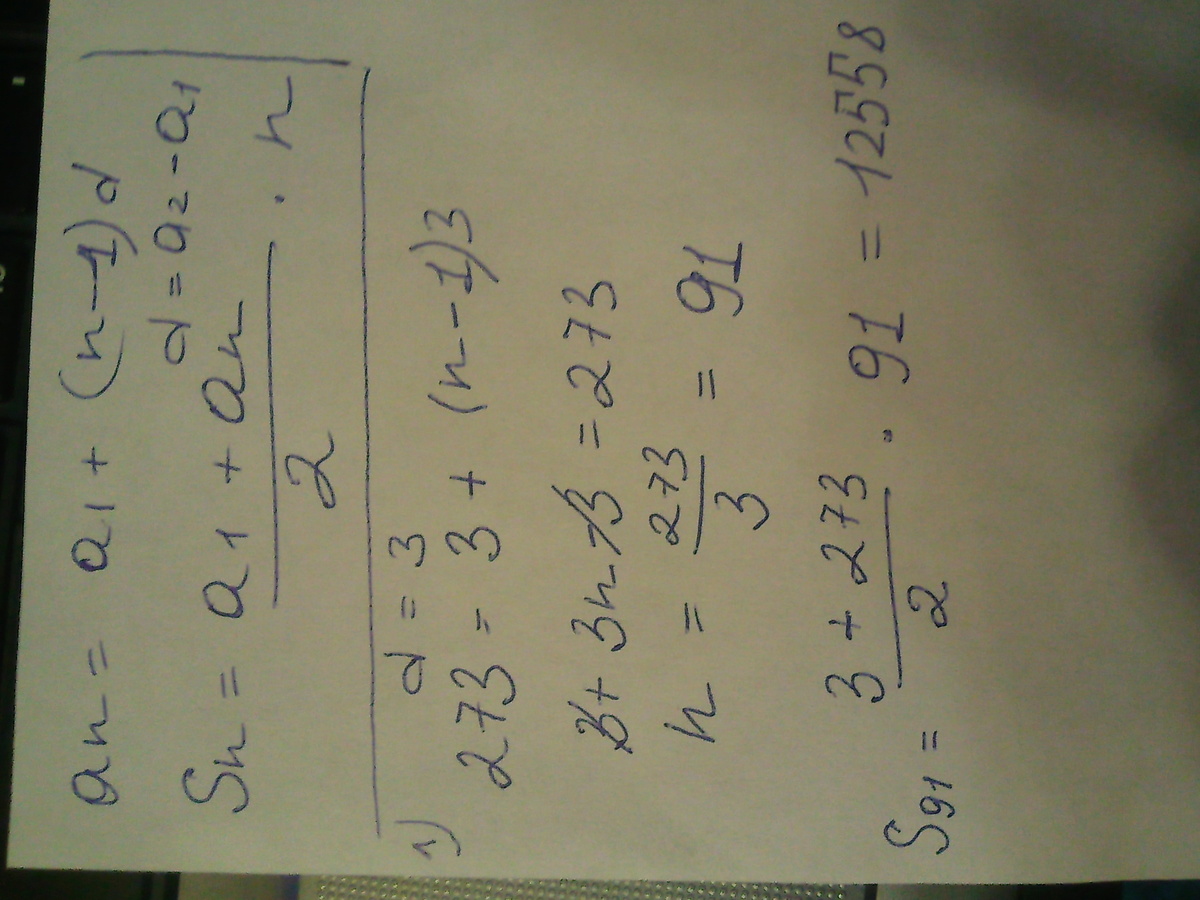 an = a1 + (n-1)d
d = a2 - a1
Sn = (a1 + an)/2 · n
1) d = 3
273 = 3 + (n-1)3
3 + 3n - 3 = 273
n = 273/3 = 91
S91 = (3 + 273)/2 · 91 = 12558